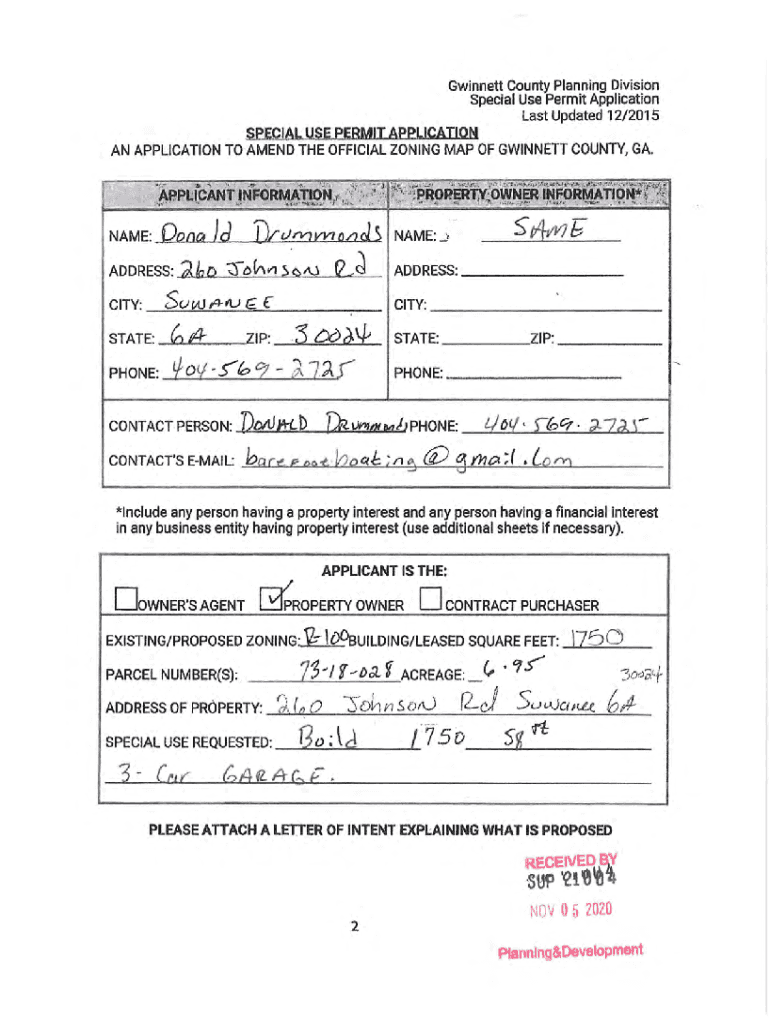 Gwinnett County Planning Division
Special Use Permit Application
Last Updated 12/2015
SPECIAL USE PERMIT APPLICATION
AN APPLICATION TO AMEND THE OFFICIAL ZONING MAP OF GWINNETT COUNTY, GA.
APPLICANT INFORMATION PROPERTY OWNER INFORMATION*
NAME: Donald Drummonds NAME: SAME
ADDRESS: 260 Johnson Rd ADDRESS:
CITY: SUWANEE CITY:
STATE: GA ZIP: 30024 STATE: ZIP:
PHONE: 404-569-2725 PHONE:
CONTACT PERSON: DONALD Drummonds PHONE: 404.569.2725
CONTACT'S E-MAIL: barefootboating@gmail.com
*Include any person having a property interest and any person having a financial interest
in any business entity having property interest (use additional sheets if necessary).
APPLICANT IS THE:
OWNER'S AGENT PROPERTY OWNER CONTRACT PURCHASER
EXISTING/PROPOSED ZONING: R-100 BUILDING/LEASED SQUARE FEET: 1750
PARCEL NUMBER(S): 73-18-028 ACREAGE: 6.95
30024
ADDRESS OF PROPERTY: 260 Johnson Rd Suwanee GA
SPECIAL USE REQUESTED: Build 1750 Sq ft
3-Car GARAGE.
PLEASE ATTACH A LETTER OF INTENT EXPLAINING WHAT IS PROPOSED
RECEIVED BY
SUP '21004
NOV 05 2020
2
Planning&Development